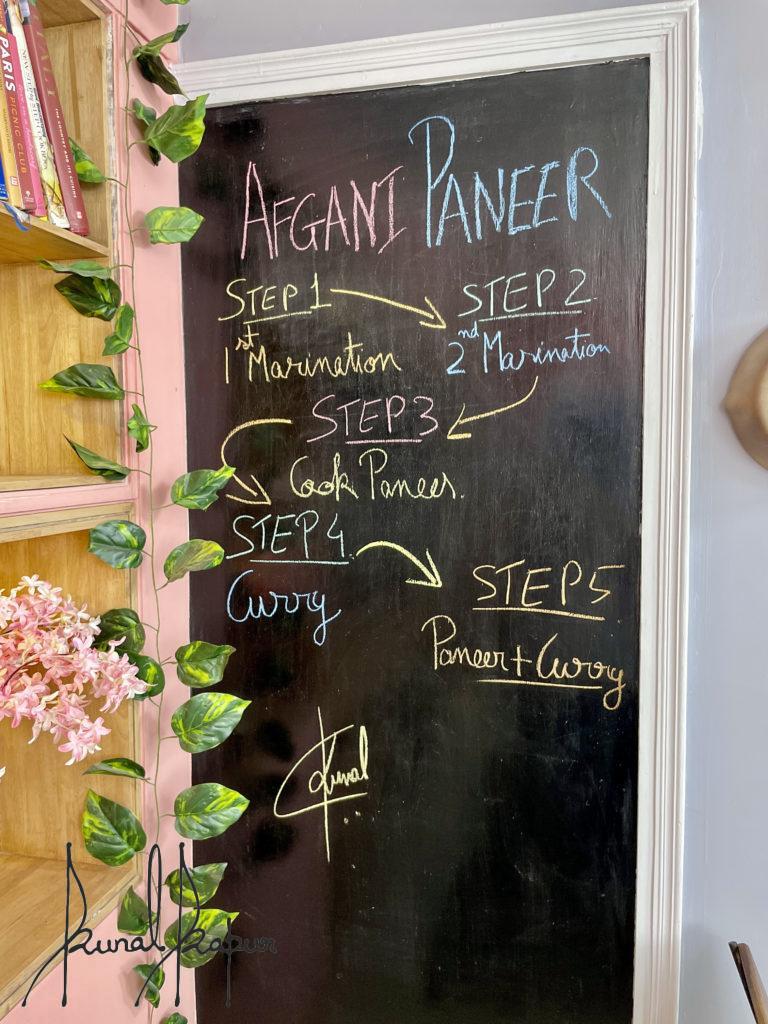 PARIS
PICNIC CLUB
AFGANI PANEER
STEP 1
STEP 2
1st Marination
2nd Marination
STEP 3
Cook Paneer.
STEP 4
Curry
STEP 5
Paneer + Curry
Kunal
Kunal Kapur